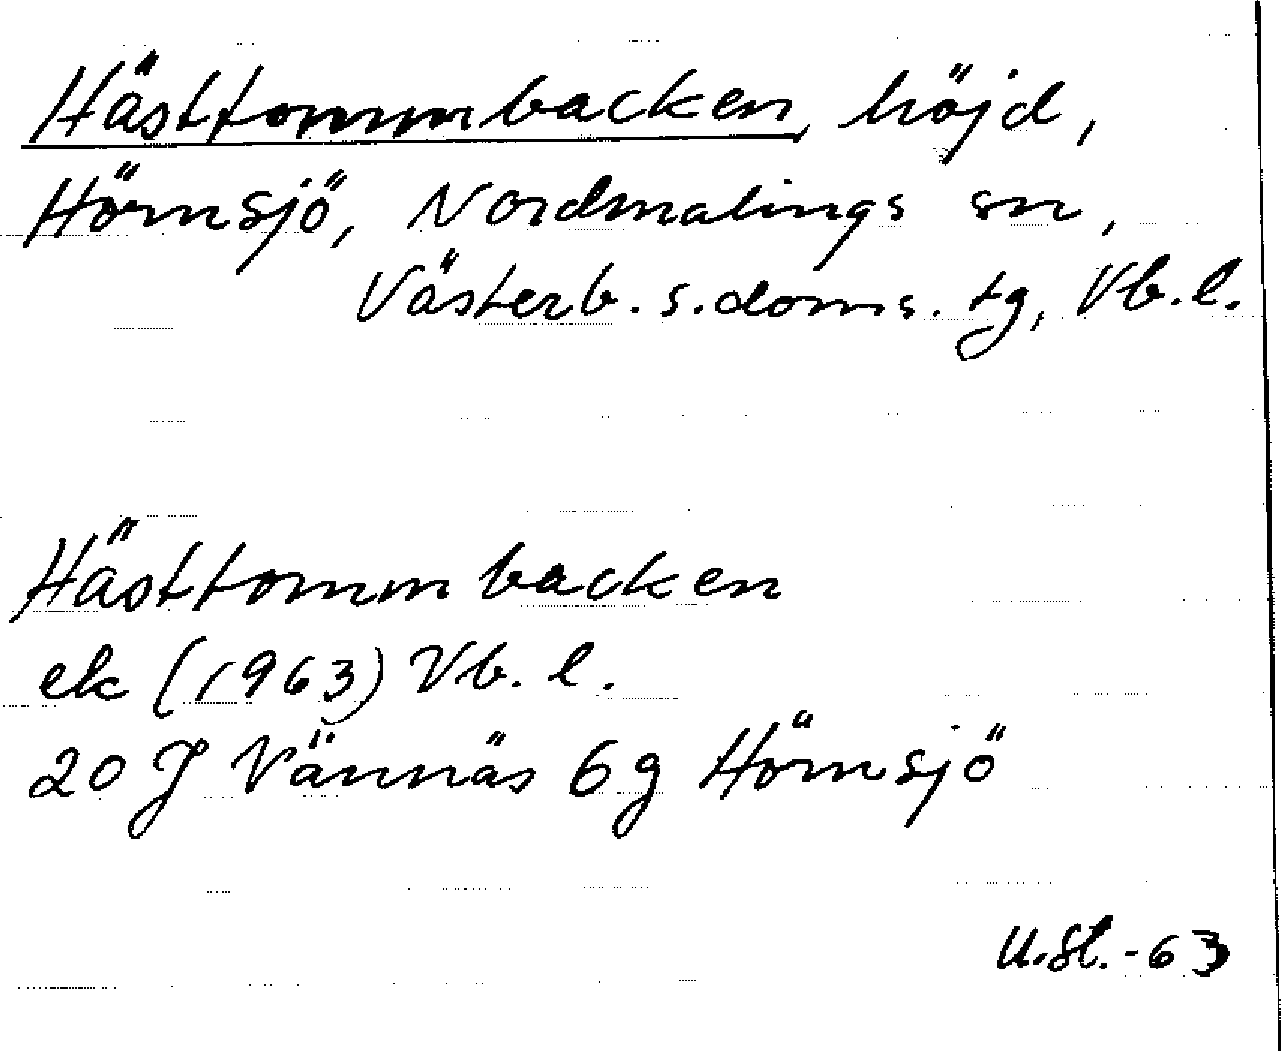 Hästtommbacken, höjd,
Hörnsjö, Nordmalings sn,
Västerb. s. doms. tg, Vb. l.
Hästtommbacken
ek (1963) Vb. l.
20 J Vännäs 6 g Hörnsjö
U.St. -63